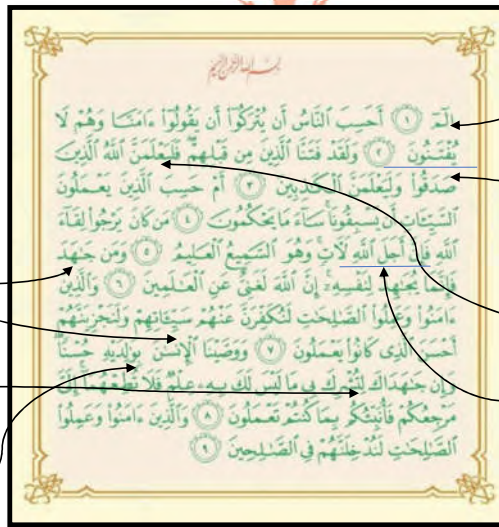 بسم الله الرحمن الرحيم
الٓمٓ ١ أَحَسِبَ ٱلنَّاسُ أَن يُتْرَكُوٓا۟ أَن يَقُولُوٓا۟ ءَامَنَّا وَهُمْ لَا
يُفْتَنُونَ ٢ وَلَقَدْ فَتَنَّا ٱلَّذِينَ مِن قَبْلِهِمْ فَلَيَعْلَمَنَّ ٱللَّهُ ٱلَّذِينَ
صَدَقُوا۟ وَلَيَعْلَمَنَّ ٱلْكَٰذِبِينَ ٣ أَمْ حَسِبَ ٱلَّذِينَ يَعْمَلُونَ
ٱلسَّيِّـَٔاتِ أَن يَسْبِقُونَا سَآءَ مَا يَحْكُمُونَ ٤ مَن كَانَ يَرْجُوا۟ لِقَآءَ
ٱللَّهِ فَإِنَّ أَجَلَ ٱللَّهِ لَءَاتٍ وَهُوَ ٱلسَّمِيعُ ٱلْعَلِيمُ ٥ وَمَن جَٰهَدَ
فَإِنَّمَا يُجَٰهِدُ لِنَفْسِهِۦٓ إِنَّ ٱللَّهَ لَغَنِىٌّ عَنِ ٱلْعَٰلَمِينَ ٦ وَٱلَّذِينَ
ءَامَنُوا۟ وَعَمِلُوا۟ ٱلصَّٰلِحَٰتِ لَنُكَفِّرَنَّ عَنْهُمْ سَيِّـَٔاتِهِمْ وَلَنَجْزِيَنَّهُمْ
أَحْسَنَ ٱلَّذِى كَانُوا۟ يَعْمَلُونَ ٧ وَوَصَّيْنَا ٱلْإِنسَٰنَ بِوَٰلِدَيْهِ حُسْنًا
وَإِن جَٰهَدَاكَ لِتُشْرِكَ بِى مَا لَيْسَ لَكَ بِهِۦ عِلْمٌ فَلَا تُطِعْهُمَآ إِلَىَّ
مَرْجِعُكُمْ فَأُنَبِّئُكُم بِمَا كُنتُمْ تَعْمَلُونَ ٨ وَٱلَّذِينَ ءَامَنُوا۟ وَعَمِلُوا۟
ٱلصَّٰلِحَٰتِ لَنُدْخِلَنَّهُمْ فِى ٱلصَّٰلِحِينَ ٩